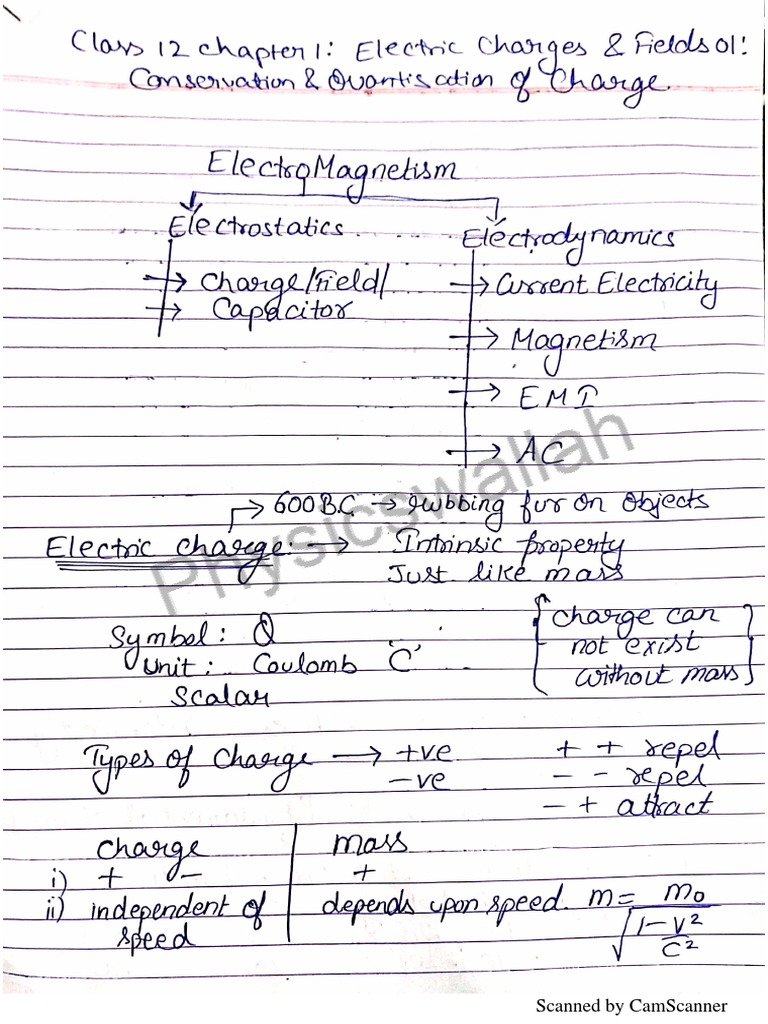 Class 12 chapter 1: Electric Charges & Fields 01:
Conservation & Quantisation of Charge.
ElectroMagnetism
Electrostatics
Electrodynamics
Charge/Field/
Capacitor
Current Electricity
Magnetism
EMI
AC
600 B.C → rubbing fur on objects
Electric charge → Intrinsic property
Just like mass
Symbol: Q
Unit: Coulomb 'C'
Scalar
{charge can
not exist
without mass}
Types of Charge → +ve
-ve
+ + repel
- - repel
- + attract
charge | mass
i) + - | +
ii) independent of speed | depends upon speed. m = m₀/√(1-v²/c²)
Physicswallah
Scanned by CamScanner